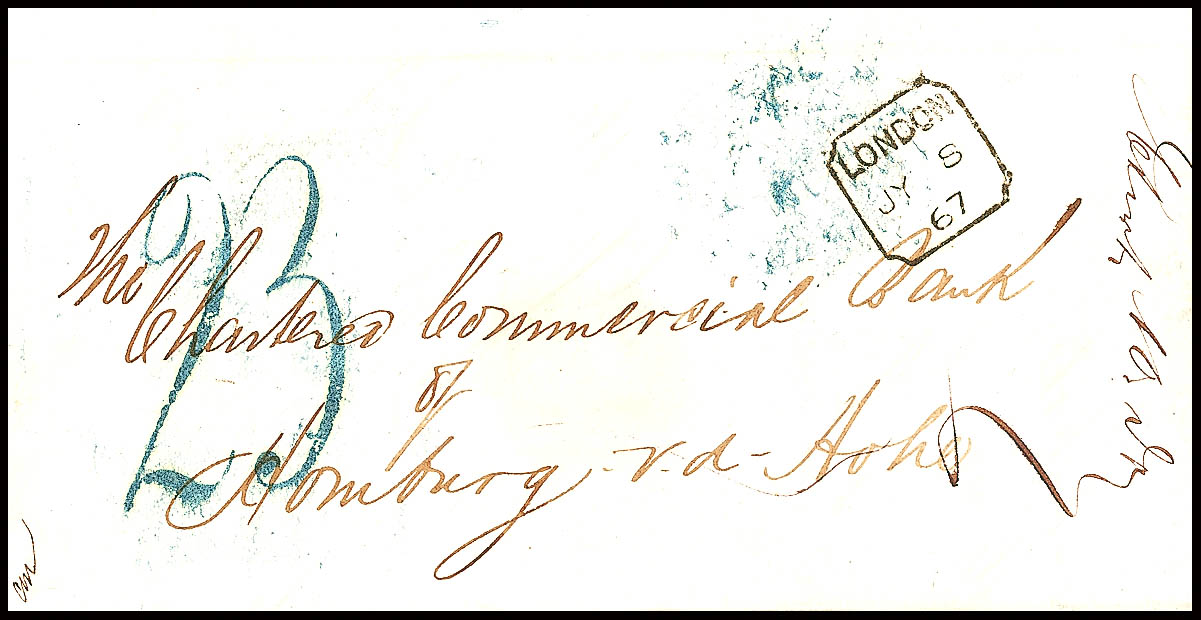 LONDON
JY 8
67
23
The
Chartered Commercial Bank
of
Homburg v. d. Höhe